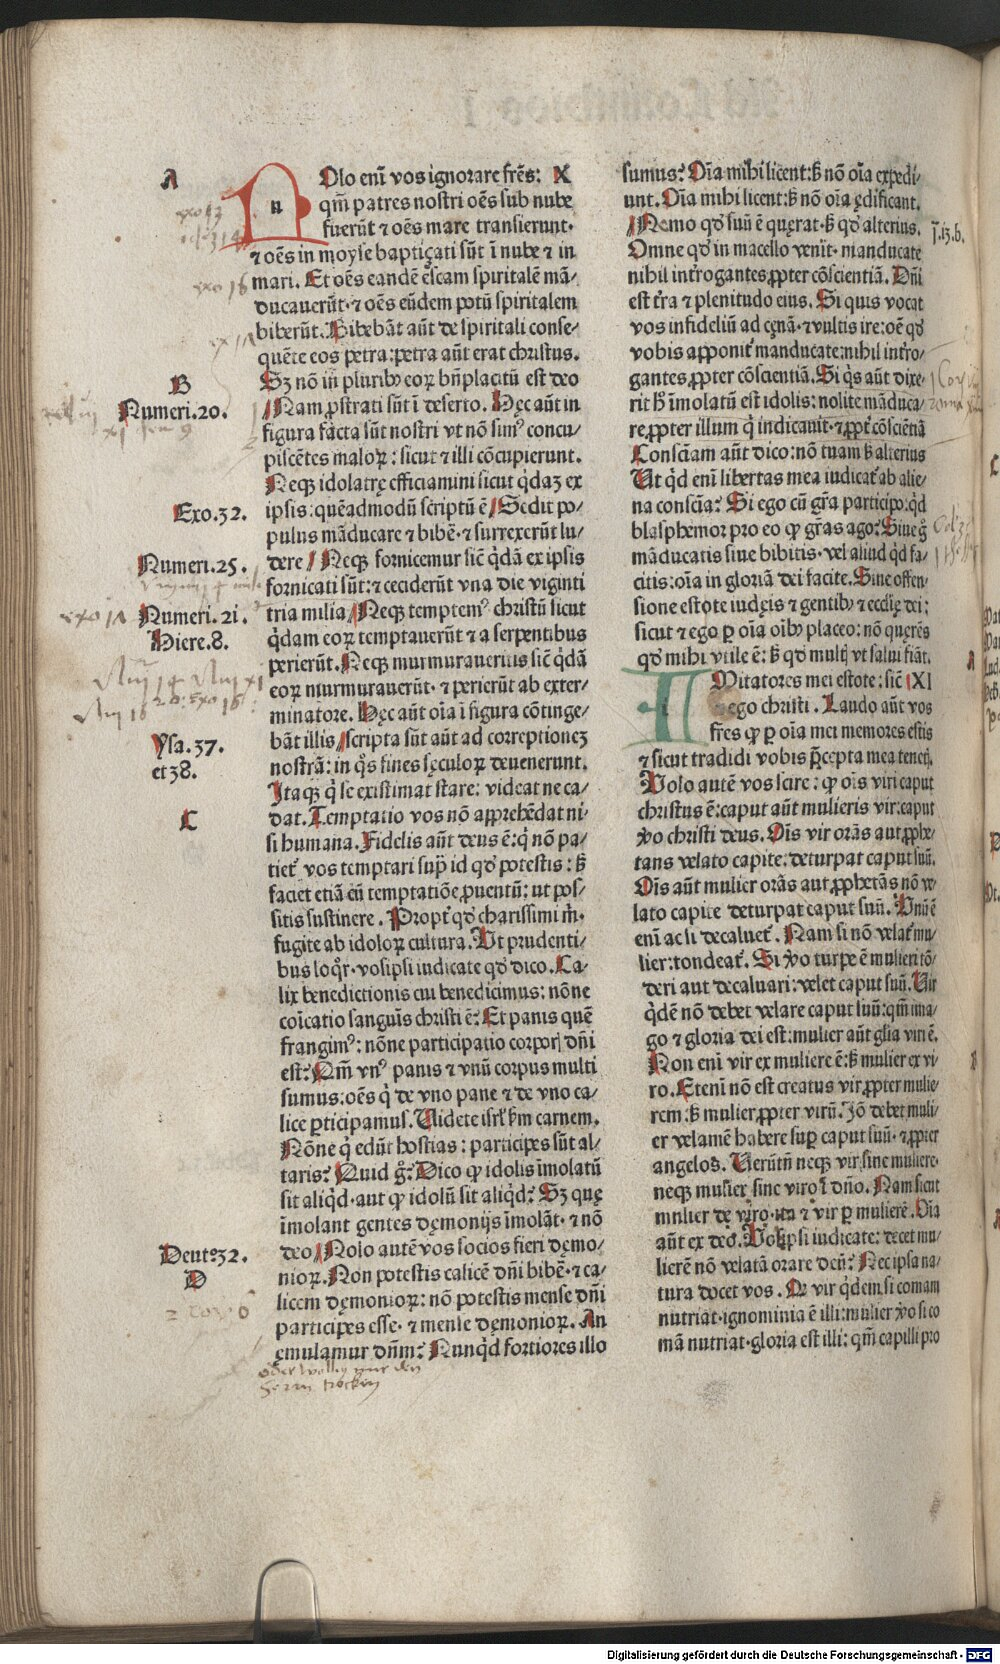 A
Olo enī vos ignorare fr̄es: X
n
qm̄ patres nostri oēs sub nube
fuerūt ⁊ oēs mare transierunt·
⁊ oēs in moyse baptiçati sūt ī nube ⁊ in
mari. Et oēs eandē ęscam spiritalē mā/
ducauerūt· ⁊ oēs eūdem potū spiritalem
biberūt. Bibebāt aūt de spiritali conse/
quēte eos petra: petra aūt erat christus.
Sꝫ nō in pluribꝰ eoꝝ bn̄placitū est deo
Nam ꝓstrati sūt ī deserto. Hęc aūt in
figura facta sūt nostri vt nō simꝰ concu/
piscētes maloꝝ: sicut ⁊ illi cōcupierunt.
Neqꝫ idolatrę efficiamini sicut q̇daꝫ ex
ipsis: quēadmodū scriptū ē Sedit po/
pulus māducare ⁊ bibē· ⁊ surrexerūt lu/
dere Neqꝫ fornicemur sic̄ q̇dā ex ipsis
fornicati sūt: ⁊ ceciderūt vna die viginti
tria milia Neqꝫ temptemꝰ christū sicut
q̇dam eoꝝ temptauerūt ⁊ a serpentibus
perierūt. Neqꝫ murmuraueritis sic̄ q̇dā
eoꝝ murmurauerūt· ⁊ perierūt ab exter/
minatore. Hęc aūt oīa ī figura cōtinge/
bāt illis scripta sūt aūt ad correptioneꝫ
nostrā: in q̇s fines sęculoꝝ deuenerunt.
Itaqꝫ q̇ se existimat stare: videat ne ca/
dat. Temptatio vos nō apprehēdat ni/
si humana. Fidelis aūt deus ē: q̇ nō pa/
tiet᷑ vos temptari sup̄ id qd̓ potestis: sꝫ
faciet etiā cū temptatiōe ꝓuentū: ut pos/
sitis sustinere. Propt̄ qd̓ charissimi m̄·
fugite ab idoloꝝ cultura. Ut prudenti/
bus loq̇r· vosipsi iudicate qd̓ dico. Ca/
lix benedictionis cui benedicimus: nōne
coīcatio sanguīs christi ē: Et panis quē
frangimꝰ: nōne participatio corporꝭ dn̄i
est: Qm̄ vnꝰ panis ⁊ vnū corpus multi
sumus: oēs q̇ de vno pane ⁊ de vno ca/
lice ꝑticipamus. Uidete isrl̄ sm̄ carnem.
Nōne q̇ edūt hostias: participes sūt al/
taris: Quid g̊: Dico ꝙ idolis īmolatū
sit aliq̇d· aut ꝙ idolū sit aliq̇d: Sꝫ quę
īmolant gentes dęmonijs īmolāt· ⁊ nō
deo Nolo autē vos socios fieri dęmo/
nioꝝ. Non potestis calicē dn̄i bibē· ⁊ ca/
licem dęmonioꝝ: nō potestis mense dn̄i
participes esse· ⁊ mense dęmonioꝝ. An
ęmulamur dn̄m: Nunq̇d fortiores illo
exo 16
B
Numeri.20.
Exo.32.
Numeri.25.
Numeri.21.
Hiere.8.
Ysa.37.
et 38.
C
Deut°32.
D
2 cor 6
sumus: Oīa mihi licent: sꝫ nō oīa expedi/
unt. Oīa mihi licent: sꝫ nō oīa ędificant.
Nemo qd̓ suū ē quęrat· sꝫ qd̓ alterius.
Omne qd̓ in macello venit· manducate
nihil int̓rogantes ꝓpter cōscientiā. Dn̄i
est t̓ra ⁊ plenitudo eius. Si quis vocat
vos infideliū ad cęnā· ⁊ vultis ire: oē qd̓
vobis apponit᷑ manducate: nihil int̓ro/
gantes ꝓpter cōscientiā. Si q̇s aūt dixe/
rit h̓ īmolatū est idolis: nolite māduca/
re ꝓpter illum q̇ indicauit· ⁊ ꝓpt̓ cōsciētiā
Consciam aūt dico: nō tuam sꝫ alterius
Ut q̇d enī libertas mea iudicat᷑ ab alie/
na conscīa: Si ego cū gr̄a participo: q̇d
blasphemor pro eo ꝙ gr̄as ago: Siue g̊
māducatis siue bibitis· vel aliud q̇d fa/
citis: oīa in gloriā dei facite. Sine offen/
sione estote iudęis ⁊ gentibꝰ ⁊ ecclię dei:
sicut ⁊ ego ꝑ oīa oībꝰ placeo: nō querēs
qd̓ mihi vtile ē: sꝫ qd̓ multꝭ vt salui fiāt.
Mitatores mei estote: sic̄ XI
i
⁊ ego christi. Laudo aūt vos
fr̄es ꝙ ꝑ oīa mei memores estis
⁊ sicut tradidi vobis p̄cepta mea tenetꝭ.
Uolo autē vos scire: ꝙ oīs viri caput
christus ē: caput aūt mulieris vir: caput
v̓o christi deus. Oīs vir orās aut ꝓphe/
tans velato capite: deturpat caput suū.
Oīs aūt mulier orās aut ꝓphetās nō ve/
lato capite deturpat caput suū. Unū ē
enī ac si decaluet᷑. Nam si nō velat᷑ mu/
lier: tondeat᷑. Si v̓o turpe ē mulieri tō/
deri aut decaluari: velet caput suū. Uir
q̇dē nō debet velare caput suū: qm̄ ima/
go ⁊ gloria dei est: mulier aūt glīa viri ē.
Non enī vir ex muliere ē: sꝫ mulier ex vi/
ro. Etenī nō est creatus vir ꝓpter mulie/
rem: sꝫ mulier ꝓpter virū. Iō debet muli/
er velamē habere sup̄ caput suū· ⁊ ꝓpter
angelos. Uerūtn̄ neqꝫ vir sine muliere·
neqꝫ mulier sine viro ī dn̄o. Nam sicut
mnlier dę viro· ita ⁊ vir ꝑ mulierē. Oīa
aūt ex deo. Uosipsi iudicate: decet mu/
lierē nō velatā orare deū: Nec ipsa na/
tura docet vos. Qꝫ vir q̇dem si comam
nutriat· ignominia ē illi: mulier v̓o si co
mā nutriat· gloria est illi: qm̄ capilli pro
j.13.b.
oder wollen mir den
Herrn trocken
Digitalisierung gefördert durch die Deutsche Forschungsgemeinschaft - DFG